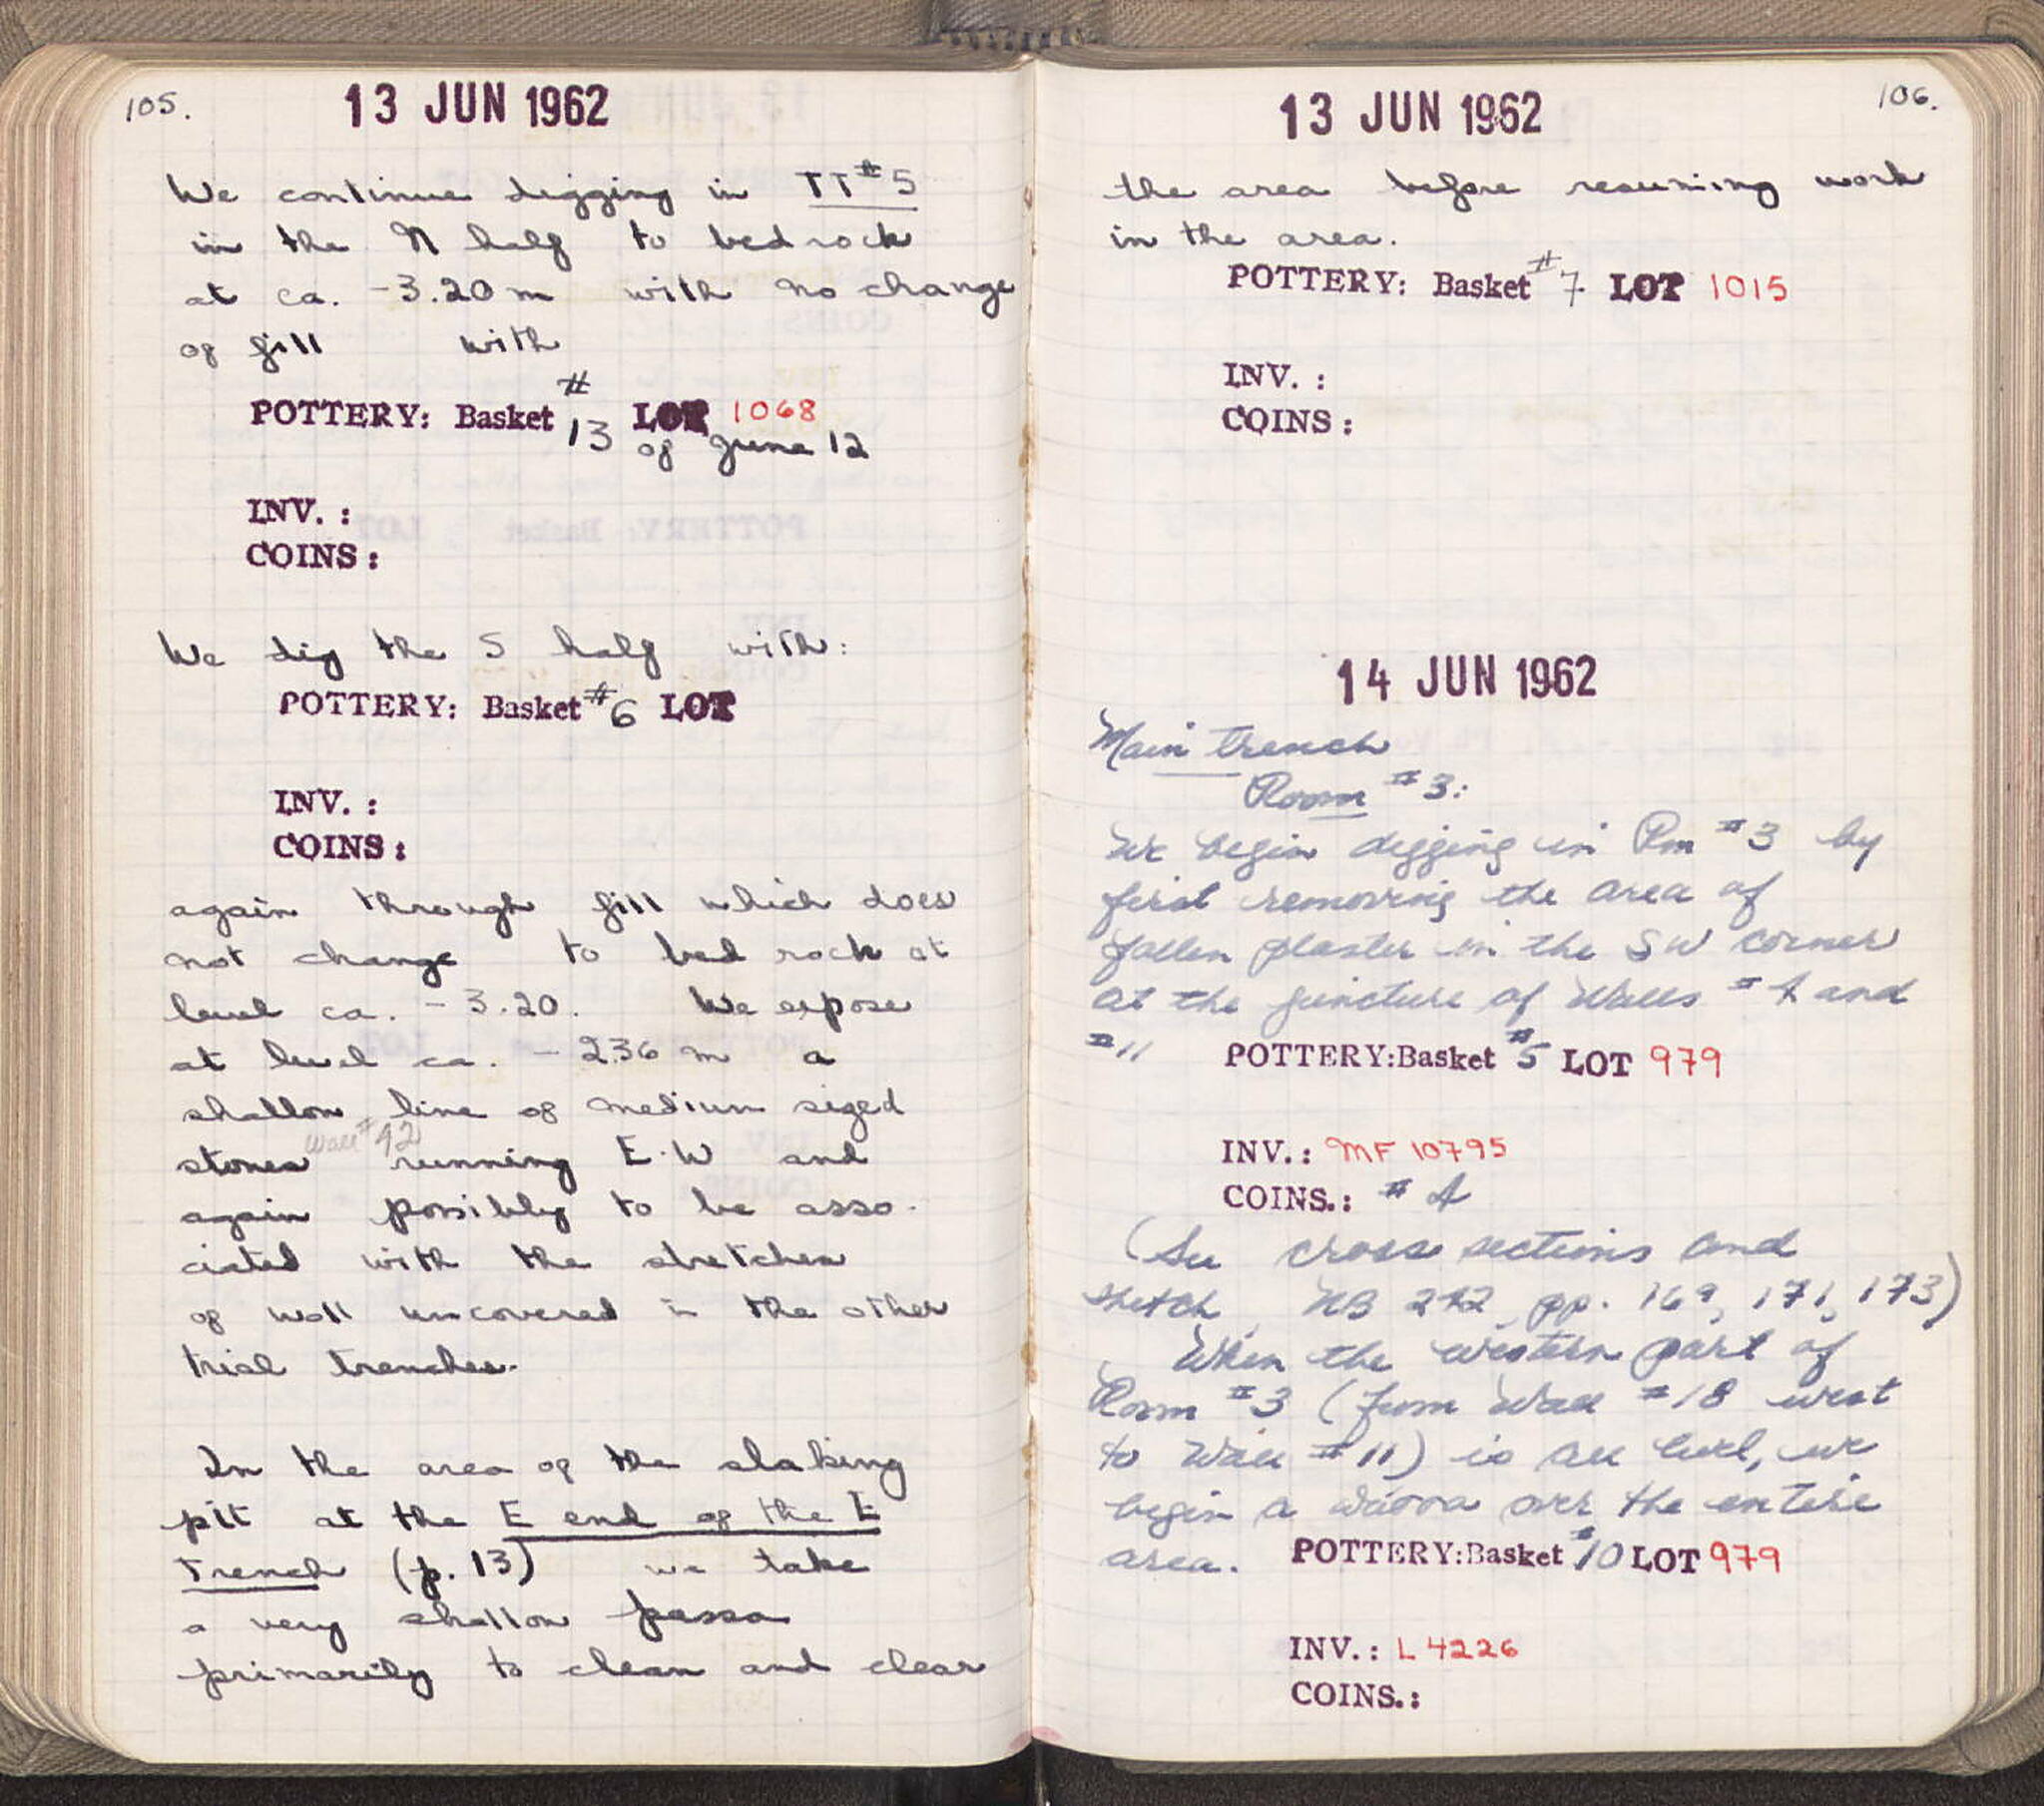 105.
13 JUN 1962
We continue digging in TT #5
in the N half to bedrock
at ca. -3.20 m with no change
of fill with
POTTERY: Basket #13 LOT 1068
of June 12
INV. :
COINS :
We dig the S half with:
POTTERY: Basket #6 LOT
INV. :
COINS :
again through fill which does
not change to bed rock at
level ca. -3.20. We expose
at level ca. - 2.36 m a
shallow line of medium sized
Wall #42
stones running E-W and
again possibly to be asso-
ciated with the stretches
of wall uncovered in the other
trial trenches.
In the area of the slaking
pit at the E end of the E
Trench (p. 13) we take
a very shallow passa
primarily to clean and clear
106.
13 JUN 1962
the area before resuming work
in the area.
POTTERY: Basket #7 LOT 1015
INV. :
COINS :
14 JUN 1962
Main trench
Room #3:
We begin digging in Rm #3 by
first removing the area of
fallen plaster in the SW corner
at the juncture of Walls #4 and
#11 POTTERY:Basket #5 LOT 979
INV.: MF 10795
COINS.: #4
(See cross sections and
sketch, NB 242, pp. 169, 171, 173)
When the western part of
Room #3 (from Wall #18 west
to Wall #11) is all level, we
begin a passa over the entire
area. POTTERY:Basket #10 LOT 979
INV.: L 4226
COINS.: